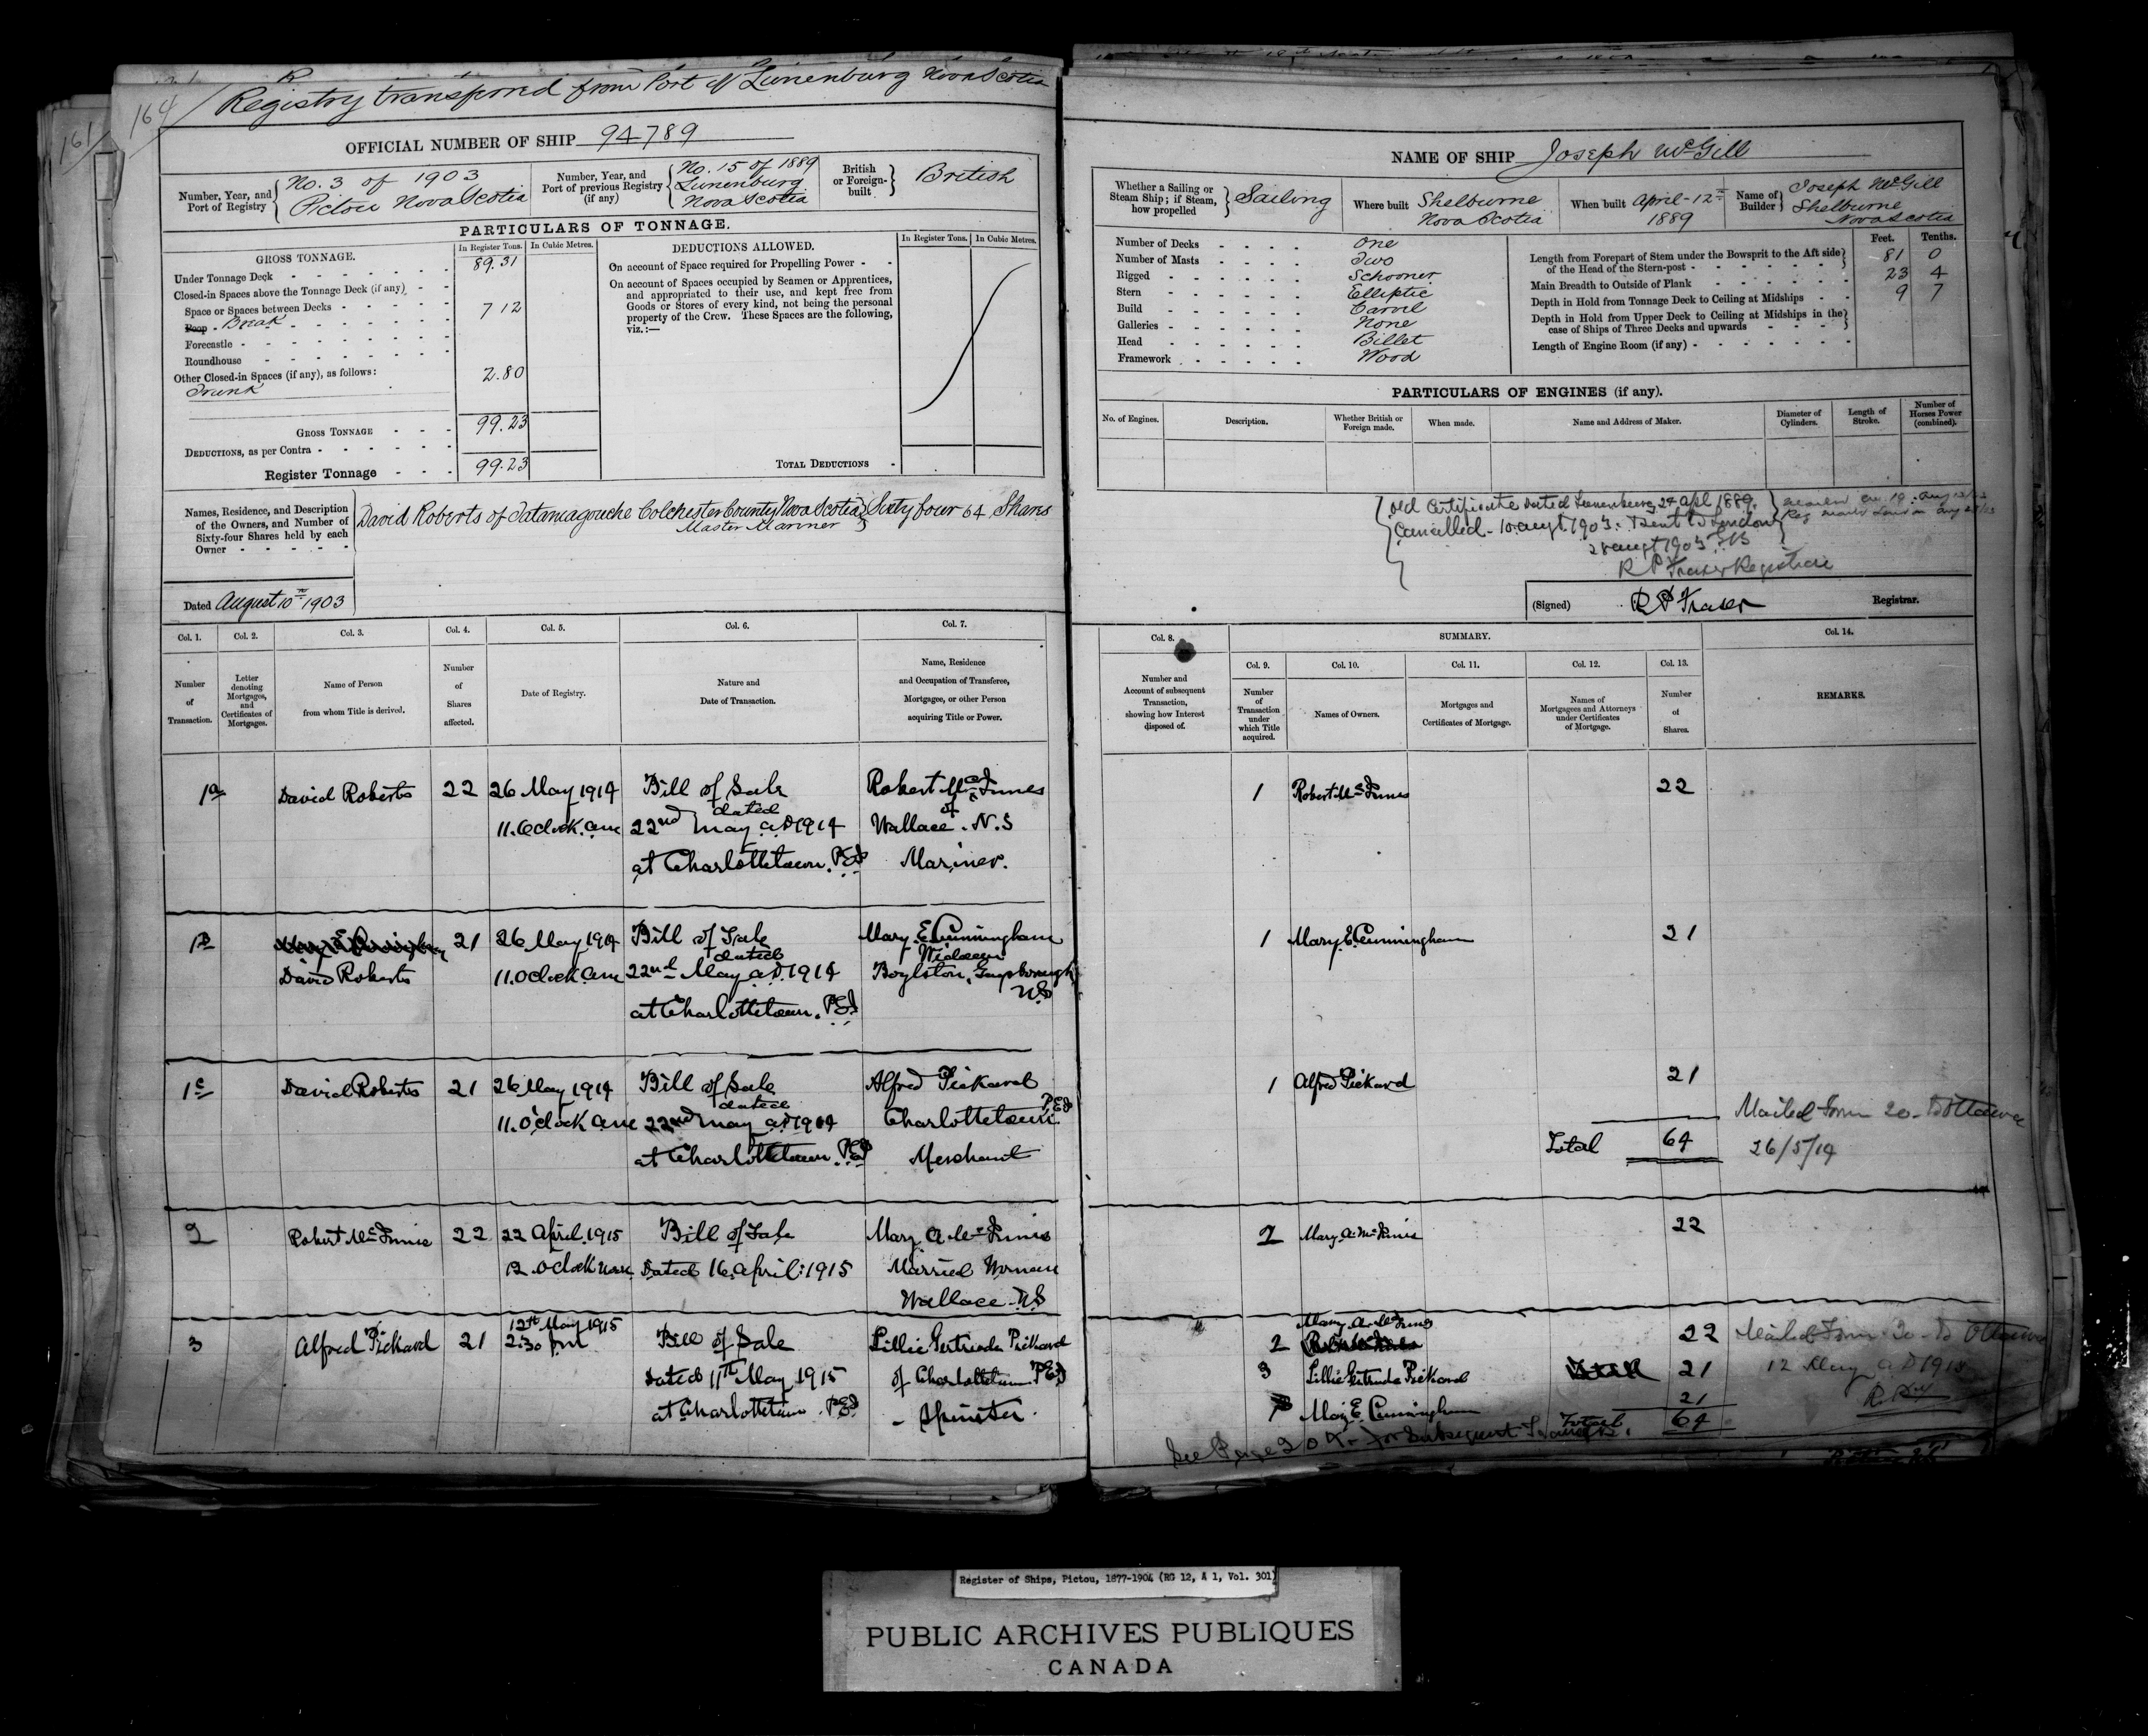 164
161
Registry transferred from Port of Lunenburg Nova Scotia
OFFICIAL NUMBER OF SHIP 94789
Number, Year, and Port of Registry
No. 3 of 1903
Pictou Nova Scotia
Number, Year, and Port of previous Registry (if any)
No. 15 of 1889
Lunenburg
Nova Scotia
British or Foreign-built
British
PARTICULARS OF TONNAGE.
GROSS TONNAGE.
In Register Tons.
In Cubic Metres.
Under Tonnage Deck 89.31
Closed-in Spaces above the Tonnage Deck (if any)
Space or Spaces between Decks
Poop Break 7 12
Forecastle
Roundhouse
Other Closed-in Spaces (if any), as follows: 2.80
Trunk
GROSS TONNAGE 99.23
DEDUCTIONS, as per Contra
Register Tonnage 99.23
DEDUCTIONS ALLOWED.
In Register Tons.
In Cubic Metres.
On account of Space required for Propelling Power
On account of Spaces occupied by Seamen or Apprentices,
and appropriated to their use, and kept free from
Goods or Stores of every kind, not being the personal
property of the Crew. These Spaces are the following,
viz.:—
TOTAL DEDUCTIONS
Names, Residence, and Description
of the Owners, and Number of
Sixty-four Shares held by each
Owner
David Roberts of Tatamagouche Colchester County Nova Scotia Sixty four 64 Shares
Master Mariner
Dated August 10th 1903
Col. 1.
Number of Transaction.
Col. 2.
Letter denoting Mortgages, and Certificates of Mortgages.
Col. 3.
Name of Person from whom Title is derived.
Col. 4.
Number of Shares affected.
Col. 5.
Date of Registry.
Col. 6.
Nature and Date of Transaction.
Col. 7.
Name, Residence and Occupation of Transferee, Mortgagee, or other Person acquiring Title or Power.
1a David Roberts 22 26 May 1914 Bill of Sale Robert McInnes
11. Oclock. am 22nd dated May A.D 1914 of Wallace. N.S
at Charlottetown. PEI Mariner.
1b 21 26 May 1914 Bill of Sale Mary. E. Cunningham
dated Widow
David Roberts 11. Oclock am 22nd May A.D. 1914 Boylston, Guysborough
at Charlottetown. PEI NS
1c David Roberts 21 26 May 1914 Bill of Sale Alfred Pickard
dated PEI
11. O'clock am 22nd May A.D 1914 Charlottetown
at Charlottetown. PEI Merchant
2 Robert McInnis 22 22 April. 1915 Bill of Sale Mary A McInnis
12. Oclock noon Dated 16. April: 1915 Married Woman
Wallace NS
12th May 1915
3 Alfred Pickard 21 2.30 pm Bill of Sale Lillie Gertrude Pickard
Dated 11th May 1915 of Charlottetown. PEI
at Charlottetown. PEI - Spinster.
NAME OF SHIP Joseph McGill
Whether a Sailing or Steam Ship; if Steam, how propelled
Sailing
Where built
Shelburne
Nova Scotia
When built
April-12th
1889
Name of Builder
Joseph McGill
Shelburne
Nova Scotia
Number of Decks One
Number of Masts Two
Rigged Schooner
Stern Elliptic
Build Carvel
Galleries None
Head Billet
Framework Wood
Feet. Tenths.
Length from Forepart of Stem under the Bowsprit to the Aft side
of the Head of the Stern-post 81 0
Main Breadth to Outside of Plank 23 4
Depth in Hold from Tonnage Deck to Ceiling at Midships 9 7
Depth in Hold from Upper Deck to Ceiling at Midships in the
case of Ships of Three Decks and upwards
Length of Engine Room (if any)
PARTICULARS OF ENGINES (if any).
No. of Engines.
Description.
Whether British or Foreign made.
When made.
Name and Address of Maker.
Diameter of Cylinders.
Length of Stroke.
Number of Horses Power (combined).
Old Certificate Dated Lunenburg 24 Apl 1889.
Cancelled - 10 augt 1903. & sent to London
28 augt 1903
R P Fraser Registrar
(Signed) R P Fraser Registrar.
Col. 8.
Number and Account of subsequent Transaction, showing how Interest disposed of.
SUMMARY.
Col. 9.
Number of Transaction under which Title acquired.
Col. 10.
Names of Owners.
Col. 11.
Mortgages and Certificates of Mortgage.
Col. 12.
Names of Mortgagees and Attorneys under Certificates of Mortgage.
Col. 13.
Number of Shares.
Col. 14.
REMARKS.
1 Robert McInnes 22
1 Mary. E. Cunningham 21
1 Alfred Pickard 21
Total 64
Mailed Form 20 - to Ottawa
26/5/14
2 Mary A. McInnis 22
2 Mary A. McInnis 22 Mailed Form 20 - to Ottawa
3 Lillie Gertrude Pickard 21 12 May A D 1915
Mary E. Cunningham 21
Total 64
See Page 20 for Subsequent
Register of Ships, Pictou, 1877-1904 (RG 12, A 1, Vol. 301)
PUBLIC ARCHIVES PUBLIQUES
CANADA